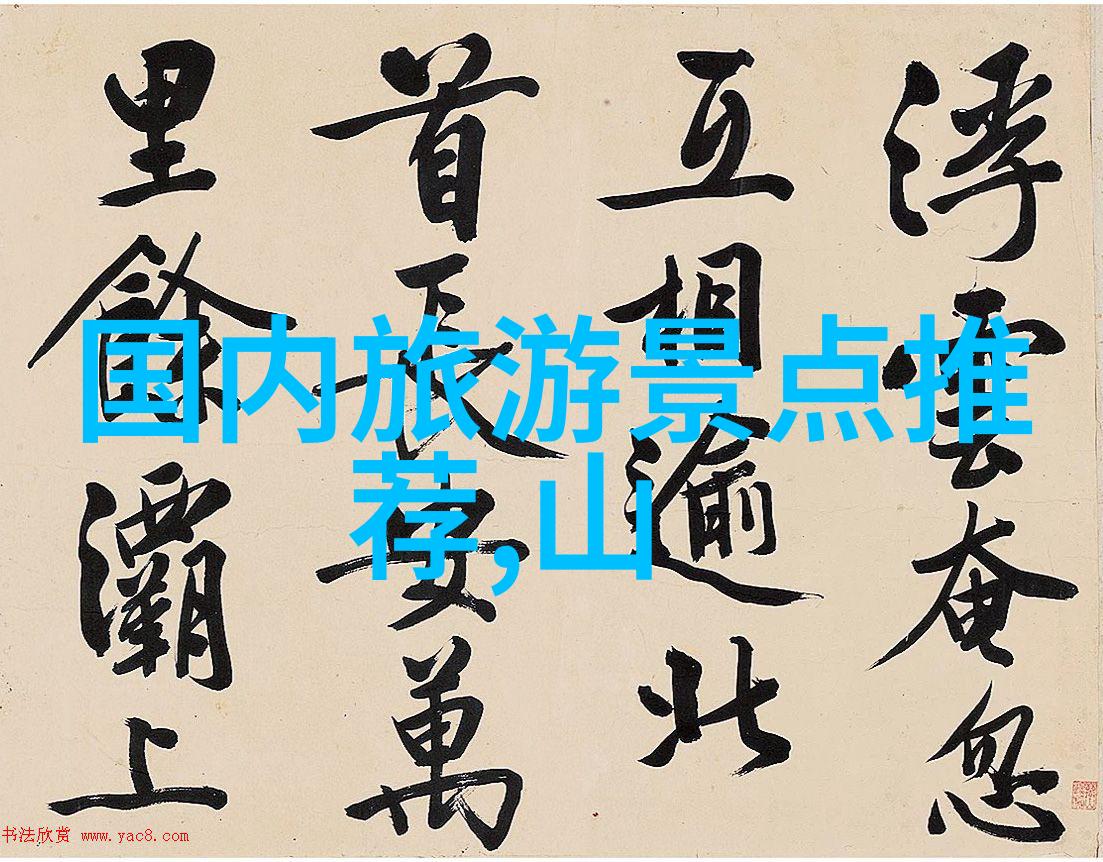 国内旅游景点推
荐,山
浮雲奄忽
互相逾北
首長安萬
里餘灞上
书法欣赏 www.yac8.com